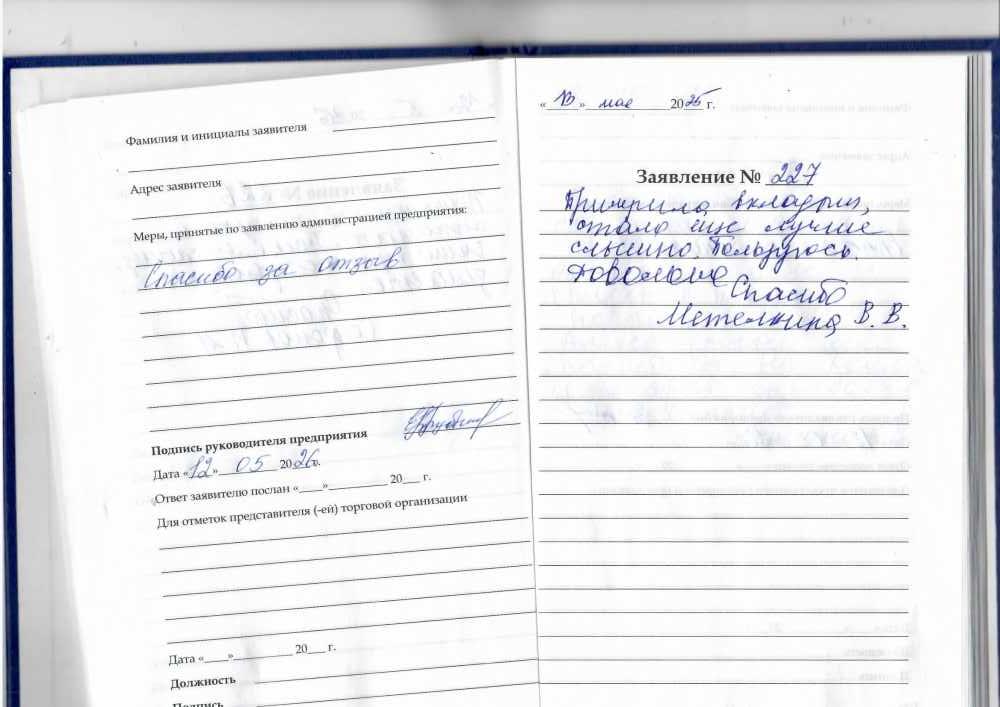 Фамилия и инициалы заявителя
Адрес заявителя
Меры, принятые по заявлению администрацией предприятия:
Спасибо за отзыв
Подпись руководителя предприятия
Дата «12» 05 2026г.
Ответ заявителю послан «___»__________ 20___ г.
Для отметок представителя (-ей) торговой организации
Дата «____»__________ 20___ г.
Должность
Подпись
«13» мае 2025 г.
Заявление № 227
Примерила вкладыш,
стало еще лучше
слышно. Пользуюсь.
Довольна
Спасибо
Метелкина В. В.